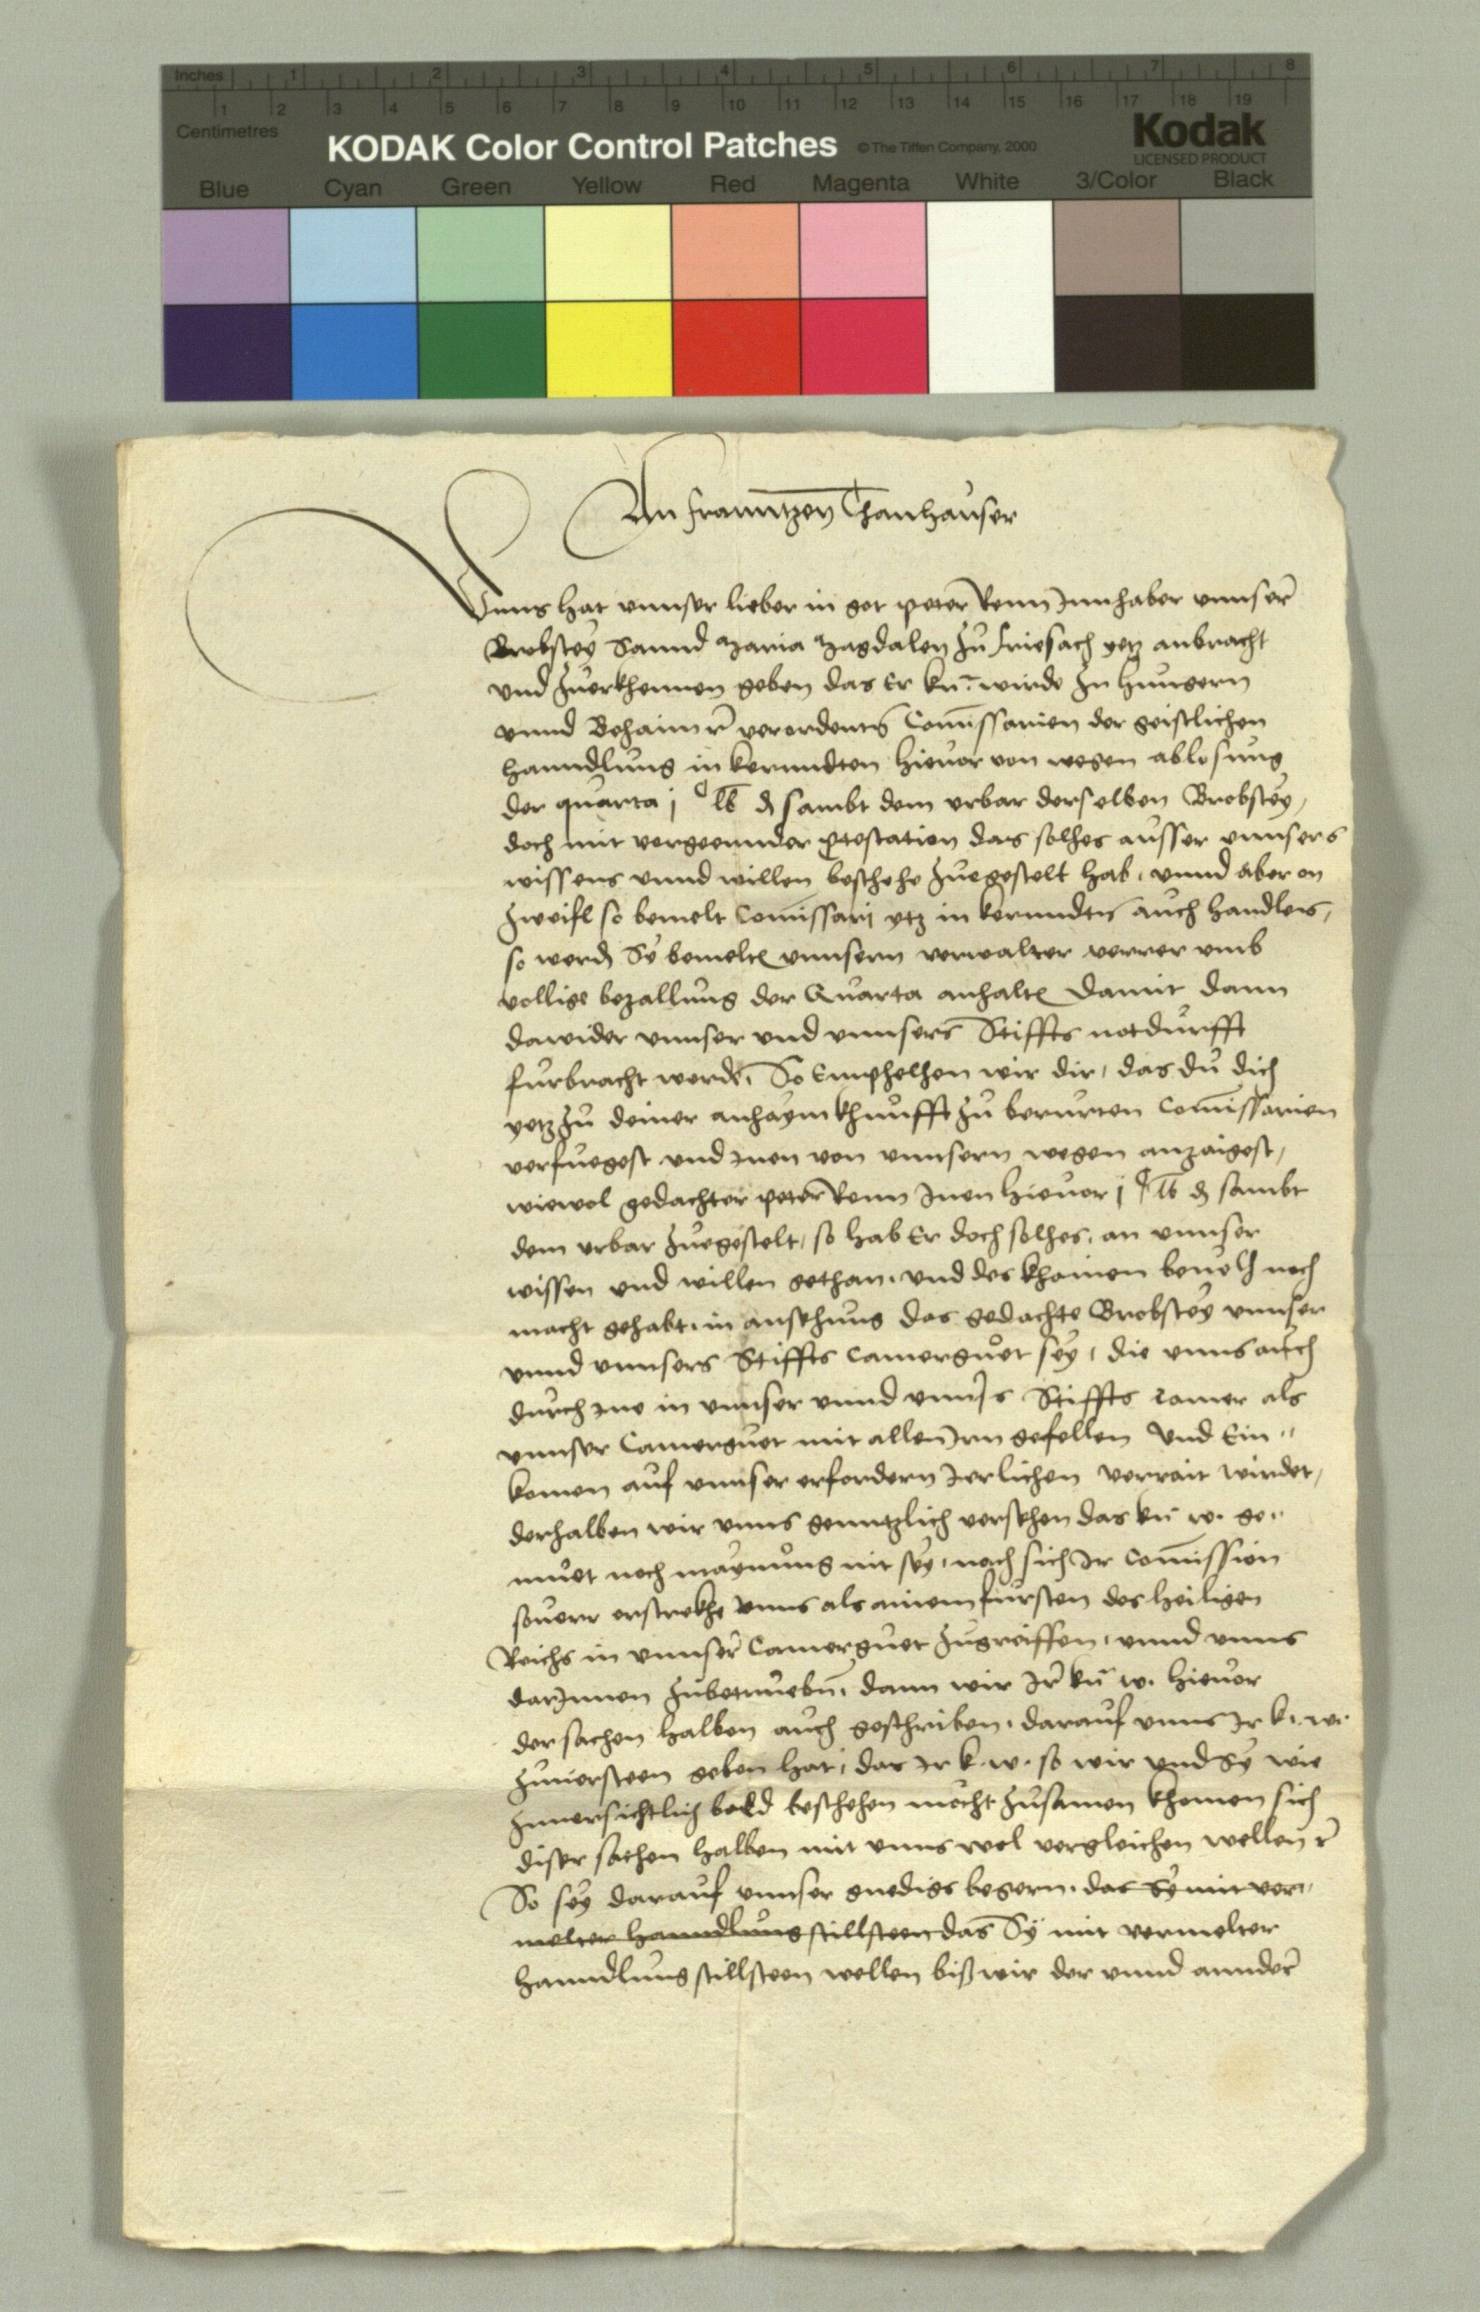 Inches 1 2 3 4 5 6 7 8
1 2 3 4 5 6 7 8 9 10 11 12 13 14 15 16 17 18 19
Centimetres
KODAK Color Control Patches © The Tiffen Company, 2000 Kodak
LICENSED PRODUCT
Blue Cyan Green Yellow Red Magenta White 3/Color Black
An Franntzen Thanhauser
Vnns hat vnnser lieber in got peter Renn Innhaber vnnser
Brobstey Sannd Maria Magdalen zu Friesach yetz anbracht
vnd zuerkhennen geben das Er ku: wirde zu Hungern
vnnd Behaim verordenten Comissarien der geistlichen
hanndlung in kernndten hieuor von wegen ablosung
der quarta j lb d sambt dem vrbar derselben Brobstey,
doch mit protestation das solhes ausser vnnsers
wissens vnnd willen beschehe zuegestelt hab, vnnd aber on
zweifl so bemelt Comissarj ytz in kernndtn auch handlen,
so werdn Sy bemelten vnnsern verwalter verrer vmb
vollige bezallung der Quarta anhalten Damit dann
dawider vnnser vnd vnnsers Stiffts notdurfft
furbracht werde, So Emphelhen wir dir, das du dich
yetz zu deiner anhaymkhunfft zu berurten Comissarien
verfuegest vnd Inen von vnnsern wegen anzaigest,
wiewol gedachter peter Renn Inen hieuor j lb d sambt
dem vrbar zuegestelt, so hab Er doch solhes, an vnnser
wissen vnd willen gethan, vnd des khainen beuelh noch
macht gehabt, in ansehung das gedachte Brobstey vnnser
vnnd vnnsers Stiffts Camerguet sey, die vnns auch
durch Ine in vnnser vnnd vnnsers Stiffts Camer als
vnnser Camerguet mit allen Irn gefellen Vnd Ein-
komen auf vnnser erfordern Jerlichen verrait wirdet,
derhalben wir vnns genntzlich versehen das ku w. ge-
muet noch maynung nit sey, noch sich Ir Comission
souerr erstrekhe vnns als ainem fursten des heiligen
Reichs in vnnser Camerguet zugreiffen, vnnd vnns
darJnnen zubetruebn, dann wir Ir ku w. hieuor
der sachen halben auch geschriben, darauf vnns Ir k. w.
zuuersteen geben hat, das Ir k. w. so wir vnd Sy wie
zuuersichtlich bald beschehen mocht zusamen khomen sich
diser sachen halben mit vnns wol vergleichen wellen
So sey darauf vnnser gnedigs begern, das Sy mit ver-
melter hanndlung stillsteen das Sy mit vermelter
hanndlung stillsteen wellen biß wir der vnnd annder